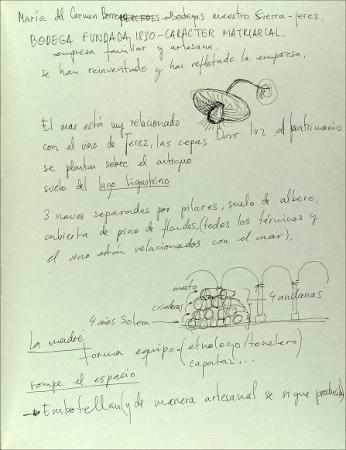 María del Carmen Borrego MERCEDES - Bodegas maestro Sierra - Jerez.
BODEGA FUNDADA, 1830 - CARACTER MATRIARCAL.
empresa familiar y artesana.
se han reinventado y han reflotado la empresa.
El mar está muy relacionado
con el vino de Jerez, las cepas
Dar luz al patrimonio
se plantan sobre el antiguo
suelo del lago Ligustino
3 naves separadas por pilares, suelo de albero,
cubierta de pino de flandes, (todos los términos y
el vino están relacionados con el mar).
mosto
criaderas
4 andanas
4 años Solera
La madre
Forma equipo - (etnologo / tonelero)
capataz...
rompe el espacio
Embotellan (y de manera artesanal se sigue